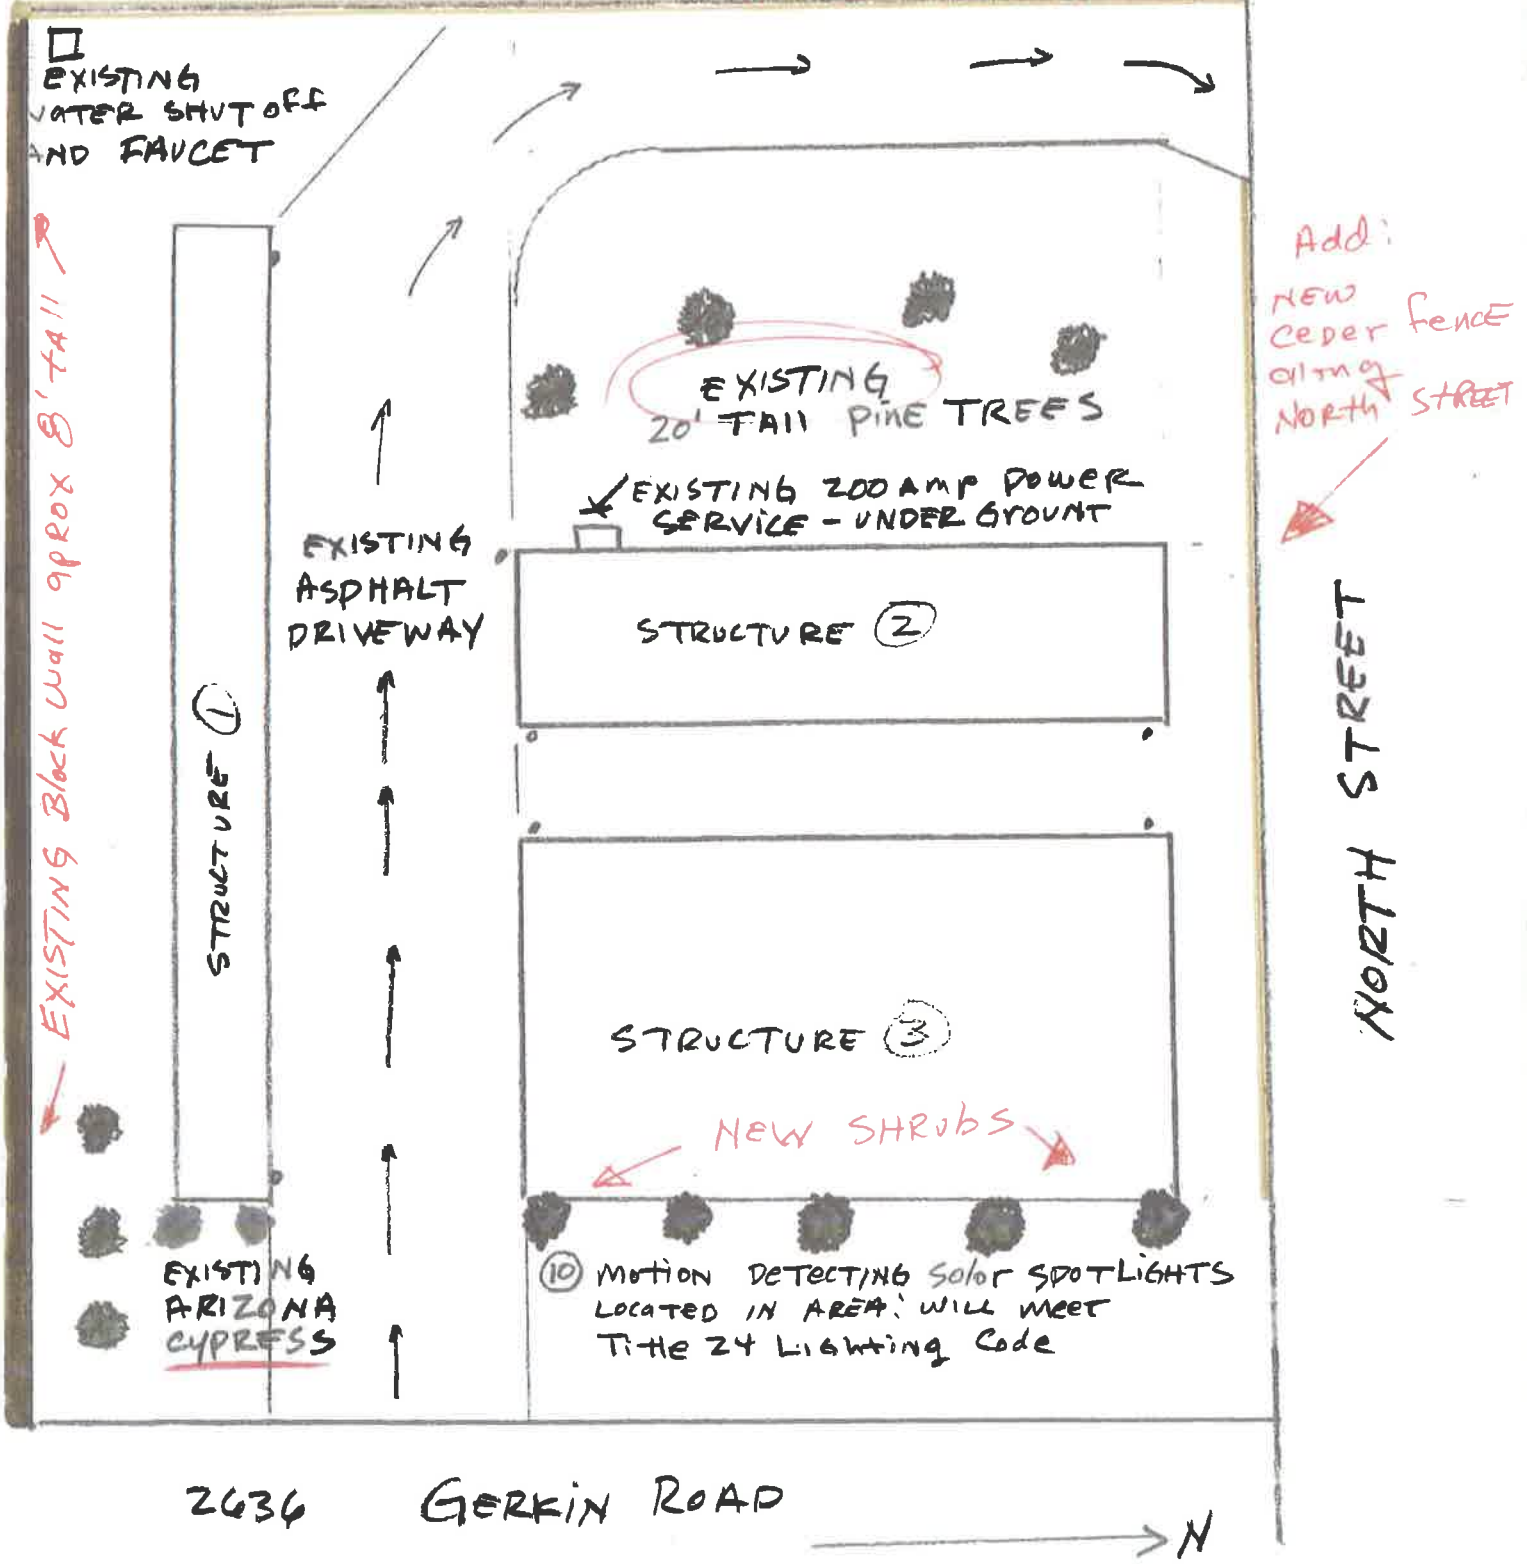 EXISTING
WATER SHUT OFF
AND FAUCET
EXISTING Block Wall apROX 8' tAll
Add:
NEW
CEDER FENCE
along
NORth STREET
EXISTING
20' TAll PinE TREES
EXISTING 200 Amp POWER
SERVICE - UNDER GROUNT
EXISTING
ASPHALT
DRIVEWAY
STRUCTURE 2
STRUCTURE 1
NORTH STREET
STRUCTURE 3
NEW SHRUbS
EXISTING
ARIZONA
CYPRESS
10 MOTION DETECTING Solor SPOTLIGHTS
LOCATED IN AREA: WILL MEET
Title 24 LIGHTING Code
2636 GERKIN ROAD
N